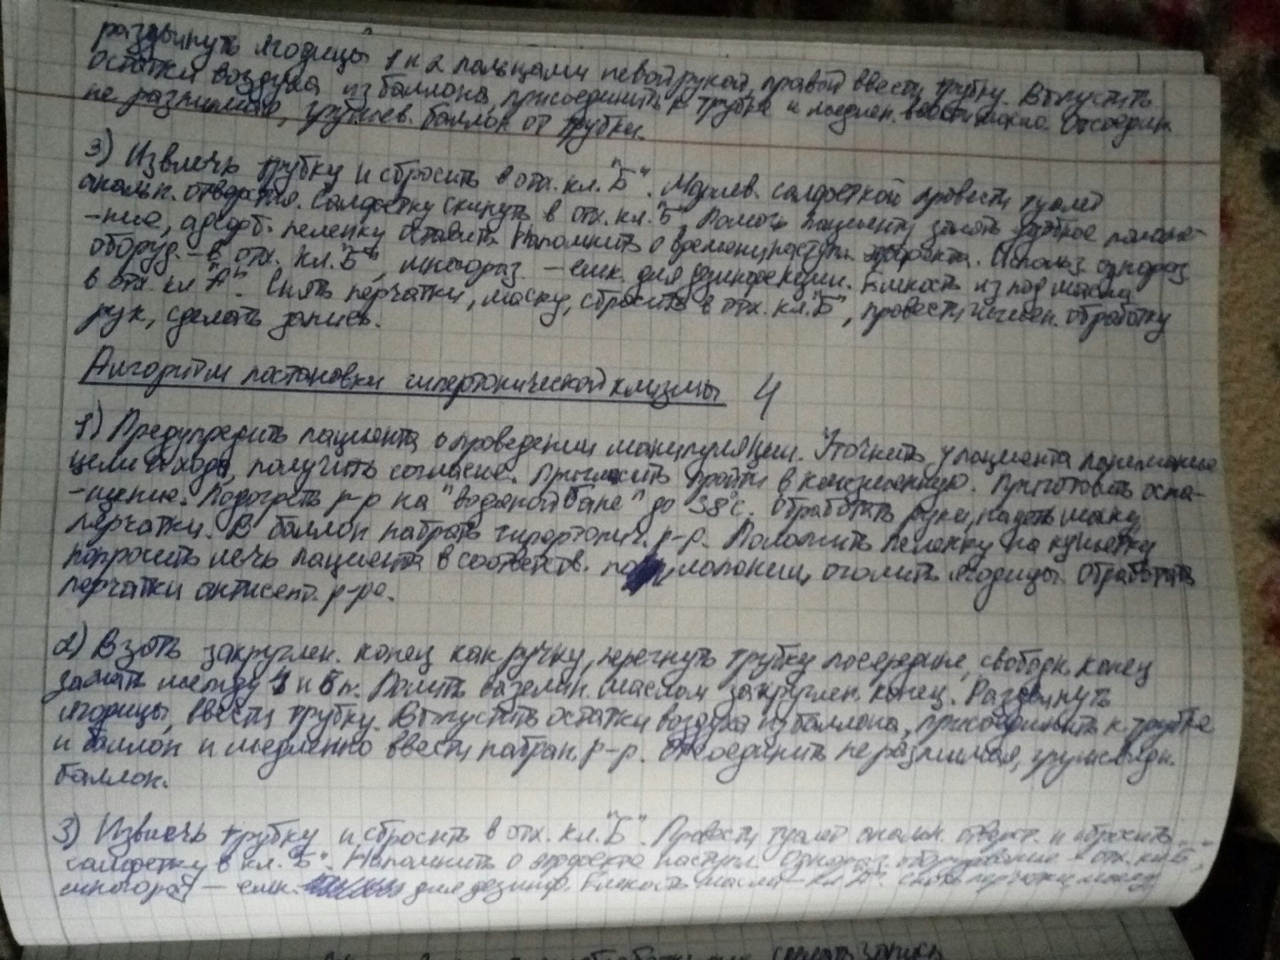 раздвинуть ягодицы 1 и 2 пальцами левой рукой, правой ввести трубку. Выпустить
остатки воздуха из баллона, присоединить к трубке и медлен. ввести масло. Отсоедин.
не разжимая, грушев. баллон от трубки.
3) Извлечь трубку и сбросить в отх. кл. "Б". Марлев. салфеткой провести туалет
анальн. отверстия. Салфетку скинуть в отх. кл. "Б". Помочь пациенту занять удобное положе-
-ние, адсорб. пеленку оставить. Напомнить о времени наступл. эффекта. Использ. однораз.
оборуд. - в отх. кл. "Б", многораз. - емк. для дезинфекции. Емкость из под масла
в отх. кл "А". Снять перчатки, маску, сбросить в отх. кл. "Б", провести гигиен. обработку
рук, сделать запись.
Алгоритм постановки гипертонической клизмы 4
1) Предупредить пациента о проведении манипуляции. Уточнить у пациента понимание
цели и хода, получить согласие. Пригласить пройти в клизменную. Приготовить осна-
-щение. Подогреть р-р на "водяной бане" до 38°с. Обработать руки, надеть маску,
перчатки. В баллон набрать гипертонич. р-р. Положить пеленку на кушетку
попросить лечь пациента в соответств. положении, оголить ягодицы. Обработать
перчатки антисепт. р-ра.
2) Взять закруглен. конец как ручку, перегнуть трубку посередине, свободн. конец
зажать между 4 и 5 п. Полить вазелин. маслом закруглен. конец. Раздвинуть
ягодицы, ввести трубку. Выпустить остатки воздуха из баллона, присоединить к трубке
и баллон и медленно ввести набран. р-р. Отсоединить не разжимая, грушевидн.
баллон.
3) Извлечь трубку и сбросить в отх. кл. "Б". Провести туалет анальн. отверст. и сбросить
салфетку в кл. "Б". Напомнить о эффекта наступл. Однораз. оборудование - отх. кл "Б",
многораз - емк. для дезинф. Емкость масла - кл "А". Снять перчатки, маску
сделать запись